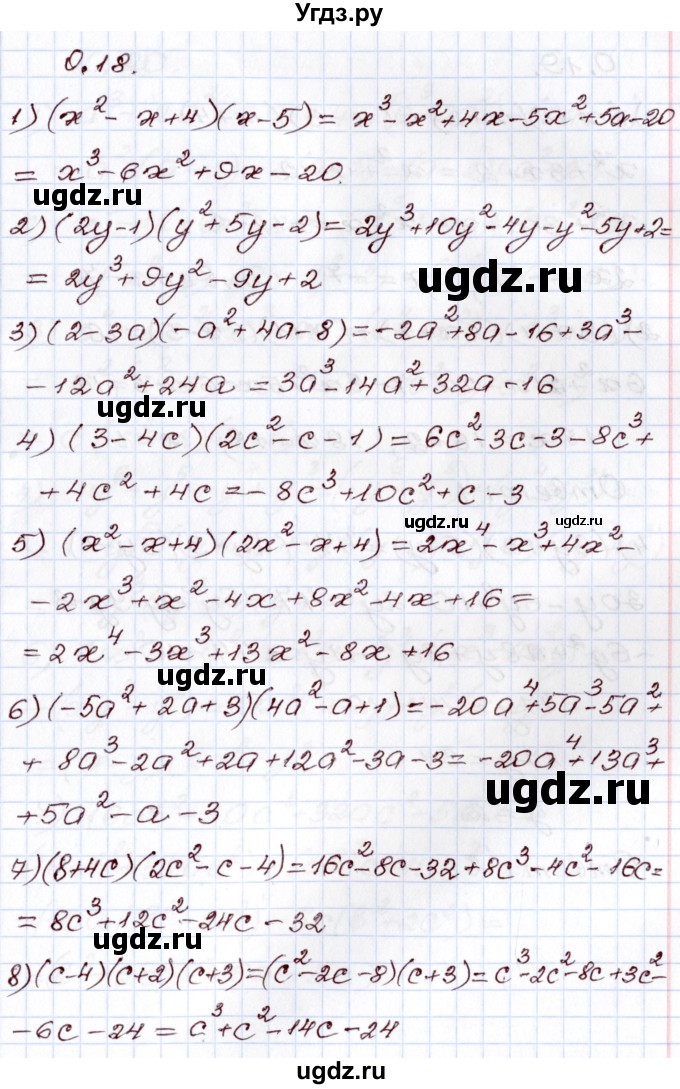 Угдз.ру
0.18.
1) (x² - x+4)(x-5) = x³-x²+4x-5x²+5x-20
= x³-6x²+9x-20.
ugdz.ru
2) (2y-1)(y²+5y-2) = 2y³+10y²-4y-y²-5y+2=
= 2y³+9y²-9y+2
ugdz.ru
3) (2-3a)(-a²+4a-8) = -2a²+8a-16+3a³-
-12a²+24a = 3a³-14a²+32a-16
ugdz.ru
4) (3-4c)(2c²-c-1) = 6c²-3c-3-8c³+
+4c²+4c = -8c³+10c²+c-3
ugdz.ru ugdz.ru
5) (x²-x+4)(2x²-x+4) = 2x⁴-x³+4x²-
-2x³+x²-4x+8x²-4x+16 =
= 2x⁴-3x³+13x²-8x+16
ugdz.ru
6) (-5a²+2a+3)(4a²-a+1) = -20a⁴+5a³-5a²+
+ 8a³-2a²+2a+12a²-3a-3 = -20a⁴+13a³+
ugdz.ru
+5a²-a-3
7) (8+4c)(2c²-c-4) = 16c²-8c-32+8c³-4c²-16c=
= 8c³+12c²-24c-32
ugdz.ru
8) (c-4)(c+2)(c+3) = (c²-2c-8)(c+3) = c³-2c²-8c+3c²-
-6c-24 = c³+c²-14c-24
ugdz.ru